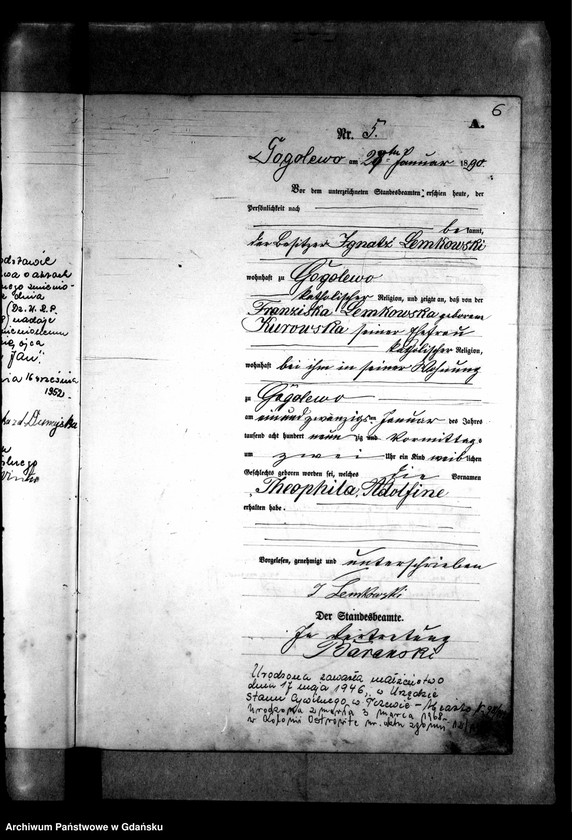 6
A.
Nr. 5.
Gogolewo am 28ten Januar 1890.
Vor dem unterzeichneten Standesbeamten erschien heute, der
Persönlichkeit nach
bekannt,
der Besitzer Ignatz Lemkowski
wohnhaft zu Gogolewo
katholischer Religion, und zeigte an, daß von der
Franziska Lemkowska geborenen
Kurowska seiner Ehefrau
katholischer Religion,
wohnhaft bei ihm in seiner Wohnung
zu Gogolewo
am einundzwanzigsten Januar des Jahres
tausend acht hundert neunzig und Vormittags
um zwei Uhr ein Kind weiblichen
Geschlechts geboren worden sei, welches die Vornamen
Theophila, Adolfine
erhalten habe.
Vorgelesen, genehmigt und unterschrieben
I Lemkowski
Der Standesbeamte.
In Vertretung
Baranski
Urodzona zawarła małżeństwo
dnia 17 maja 1946 w Urzędzie
Stanu Cywilnego w Tczewie - Miasto
Urodzona zmarła 3 marca
w Kolonii Ostrowite nr. aktu zgonu
16 września
1952
Archiwum Państwowe w Gdańsku